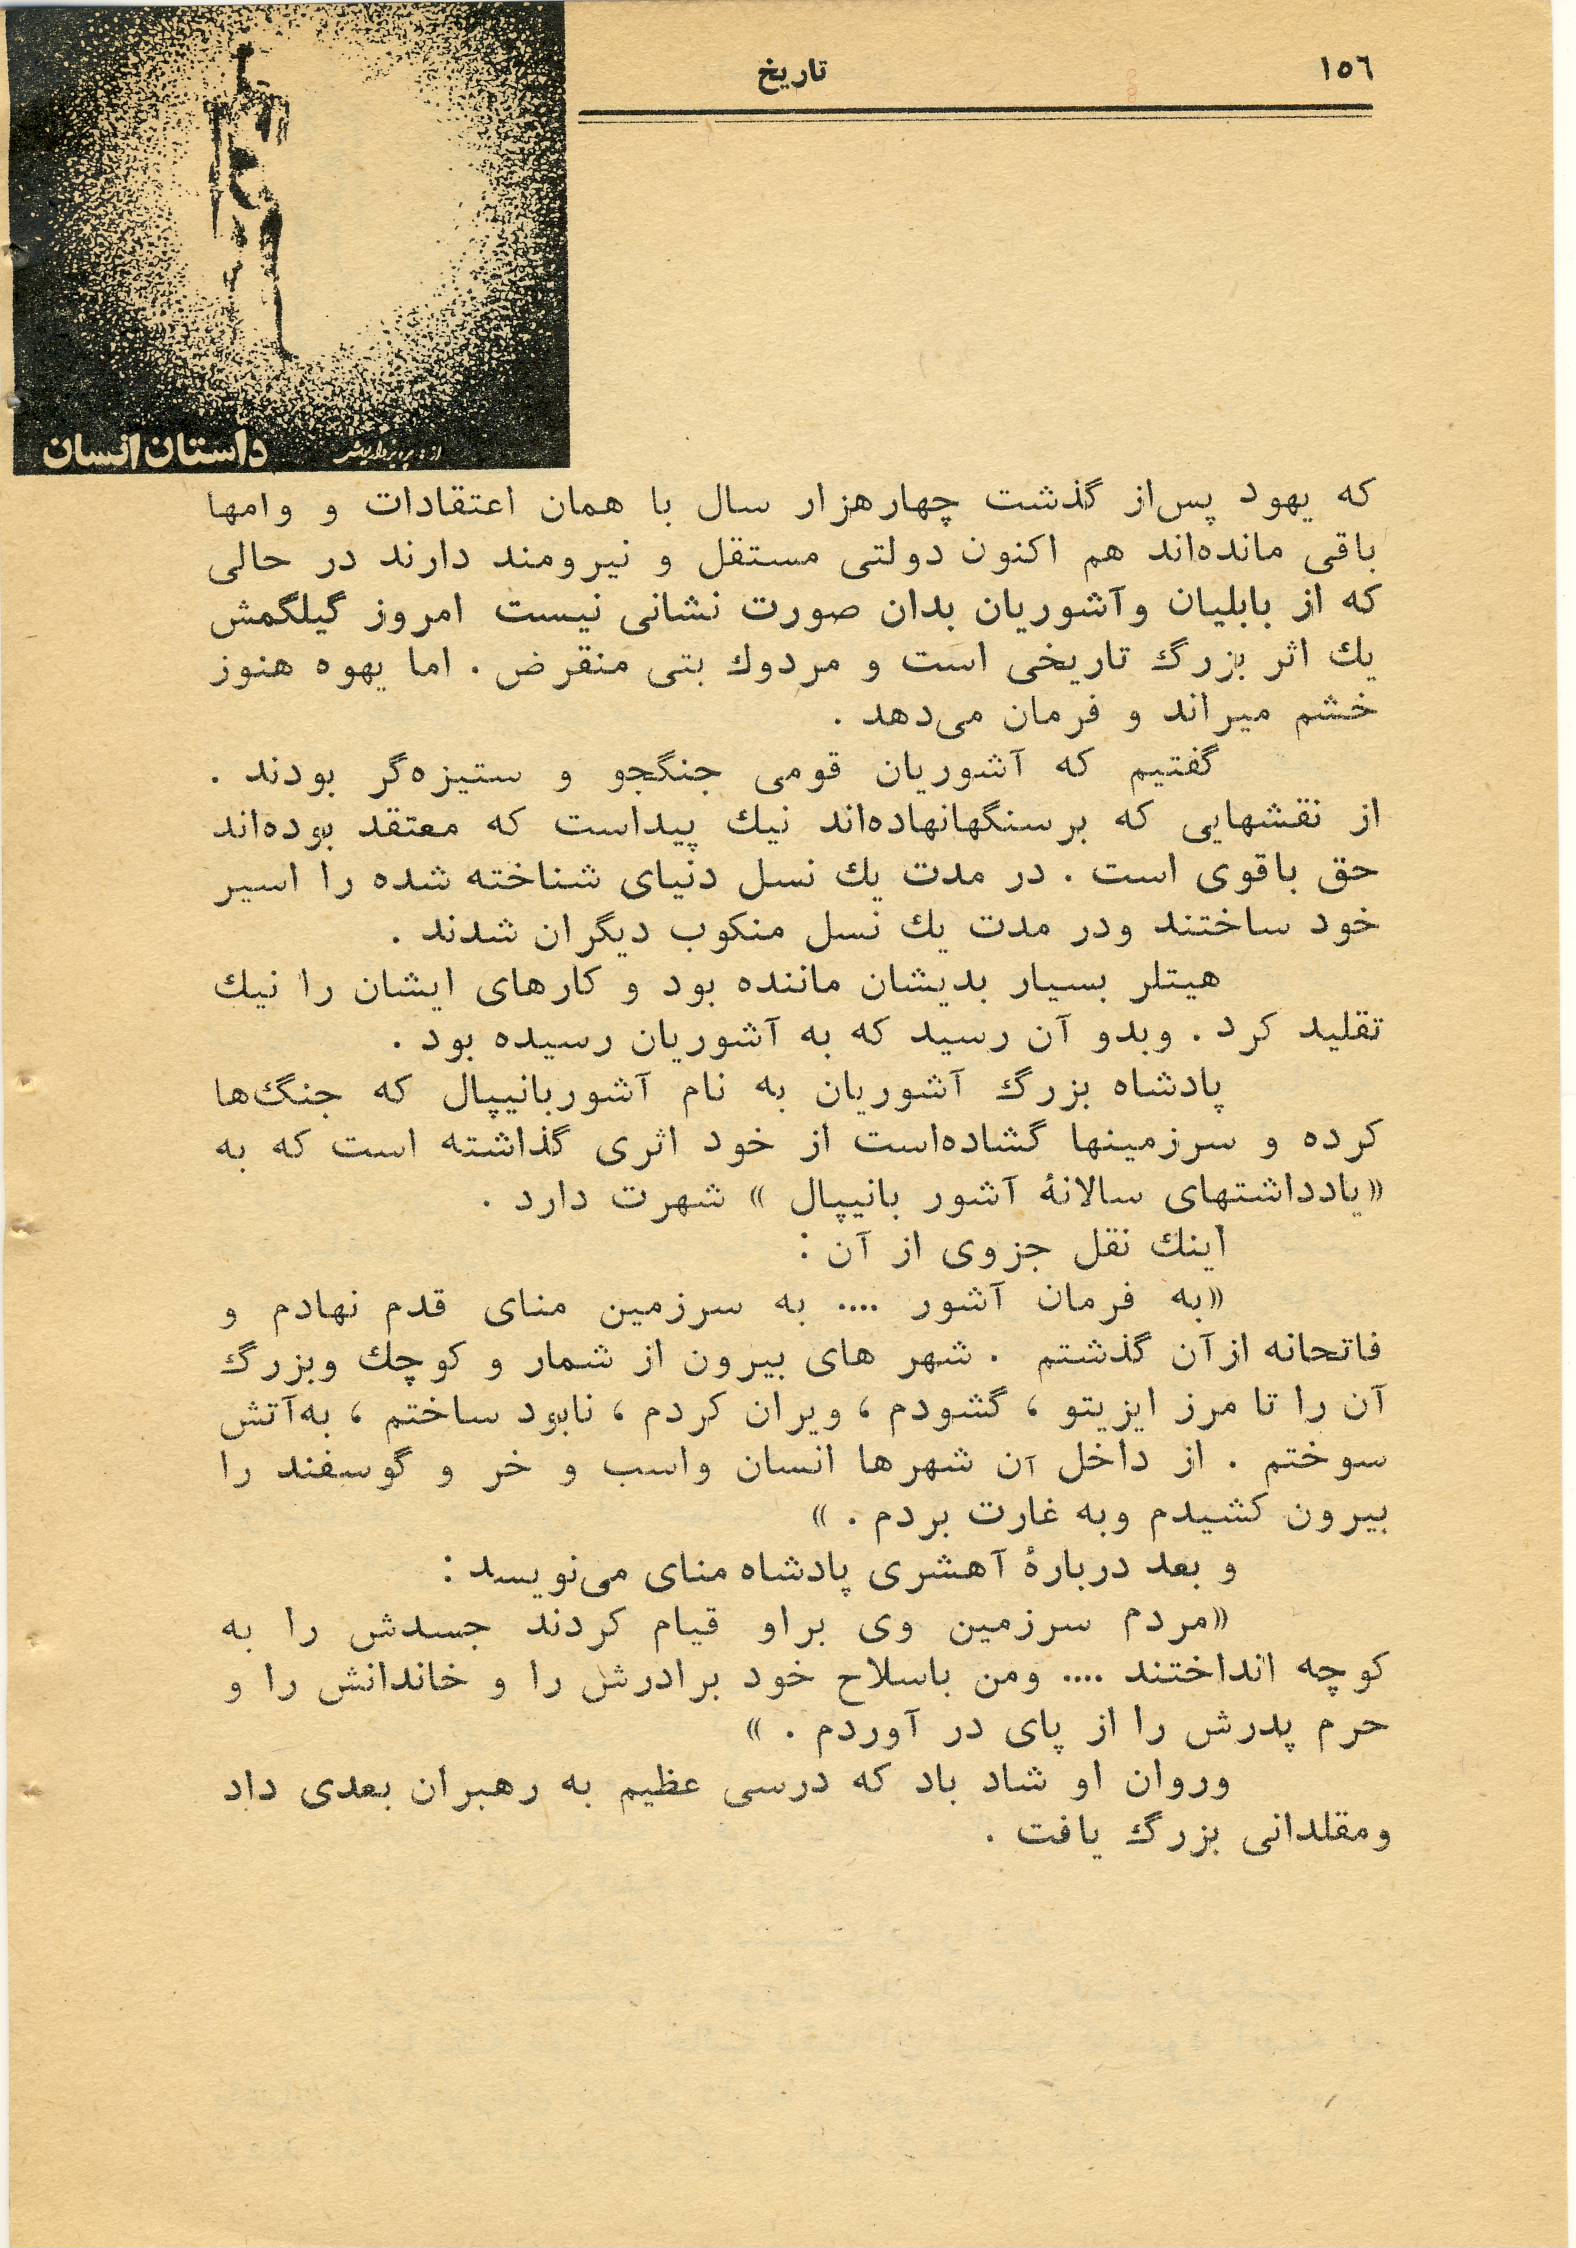 ١٥٦
تاریخ
داستان انسان
از: پرویز داریوش
که یهود پس‌از گذشت چهارهزار سال با همان اعتقادات و وامها
باقی مانده‌اند هم اکنون دولتی مستقل و نیرومند دارند در حالی
که از بابلیان وآشوریان بدان صورت نشانی نیست امروز گیلگمش
یك اثر بزرگ تاریخی است و مردوك بتی منقرض . اما یهوه هنوز
خشم میراند و فرمان می‌دهد .
گفتیم که آشوریان قومی جنگجو و ستیزه‌گر بودند .
از نقشهایی که برسنگهانهاده‌اند نیك پیداست که معتقد بوده‌اند
حق باقوی است . در مدت یك نسل دنیای شناخته شده را اسیر
خود ساختند ودر مدت یك نسل منکوب دیگران شدند .
هیتلر بسیار بدیشان ماننده بود و کارهای ایشان را نیك
تقلید کرد . وبدو آن رسید که به آشوریان رسیده بود .
پادشاه بزرگ آشوریان به نام آشوربانیپال که جنگ‌ها
کرده و سرزمینها گشاده‌است از خود اثری گذاشته است که به
«یادداشتهای سالانهٔ آشور بانیپال » شهرت دارد .
اینك نقل جزوی از آن :
«به فرمان آشور .... به سرزمین منای قدم نهادم و
فاتحانه ازآن گذشتم . شهر های بیرون از شمار و کوچك وبزرگ
آن را تا مرز ایزیتو ، گشودم ، ویران کردم ، نابود ساختم ، به‌آتش
سوختم . از داخل آن شهرها انسان واسب و خر و گوسفند را
بیرون کشیدم وبه غارت بردم . »
و بعد دربارهٔ آهشری پادشاه منای می‌نویسد :
«مردم سرزمین وی براو قیام کردند جسدش را به
کوچه انداختند .... ومن باسلاح خود برادرش را و خاندانش را و
حرم پدرش را از پای در آوردم . »
وروان او شاد باد که درسی عظیم به رهبران بعدی داد
ومقلدانی بزرگ یافت .